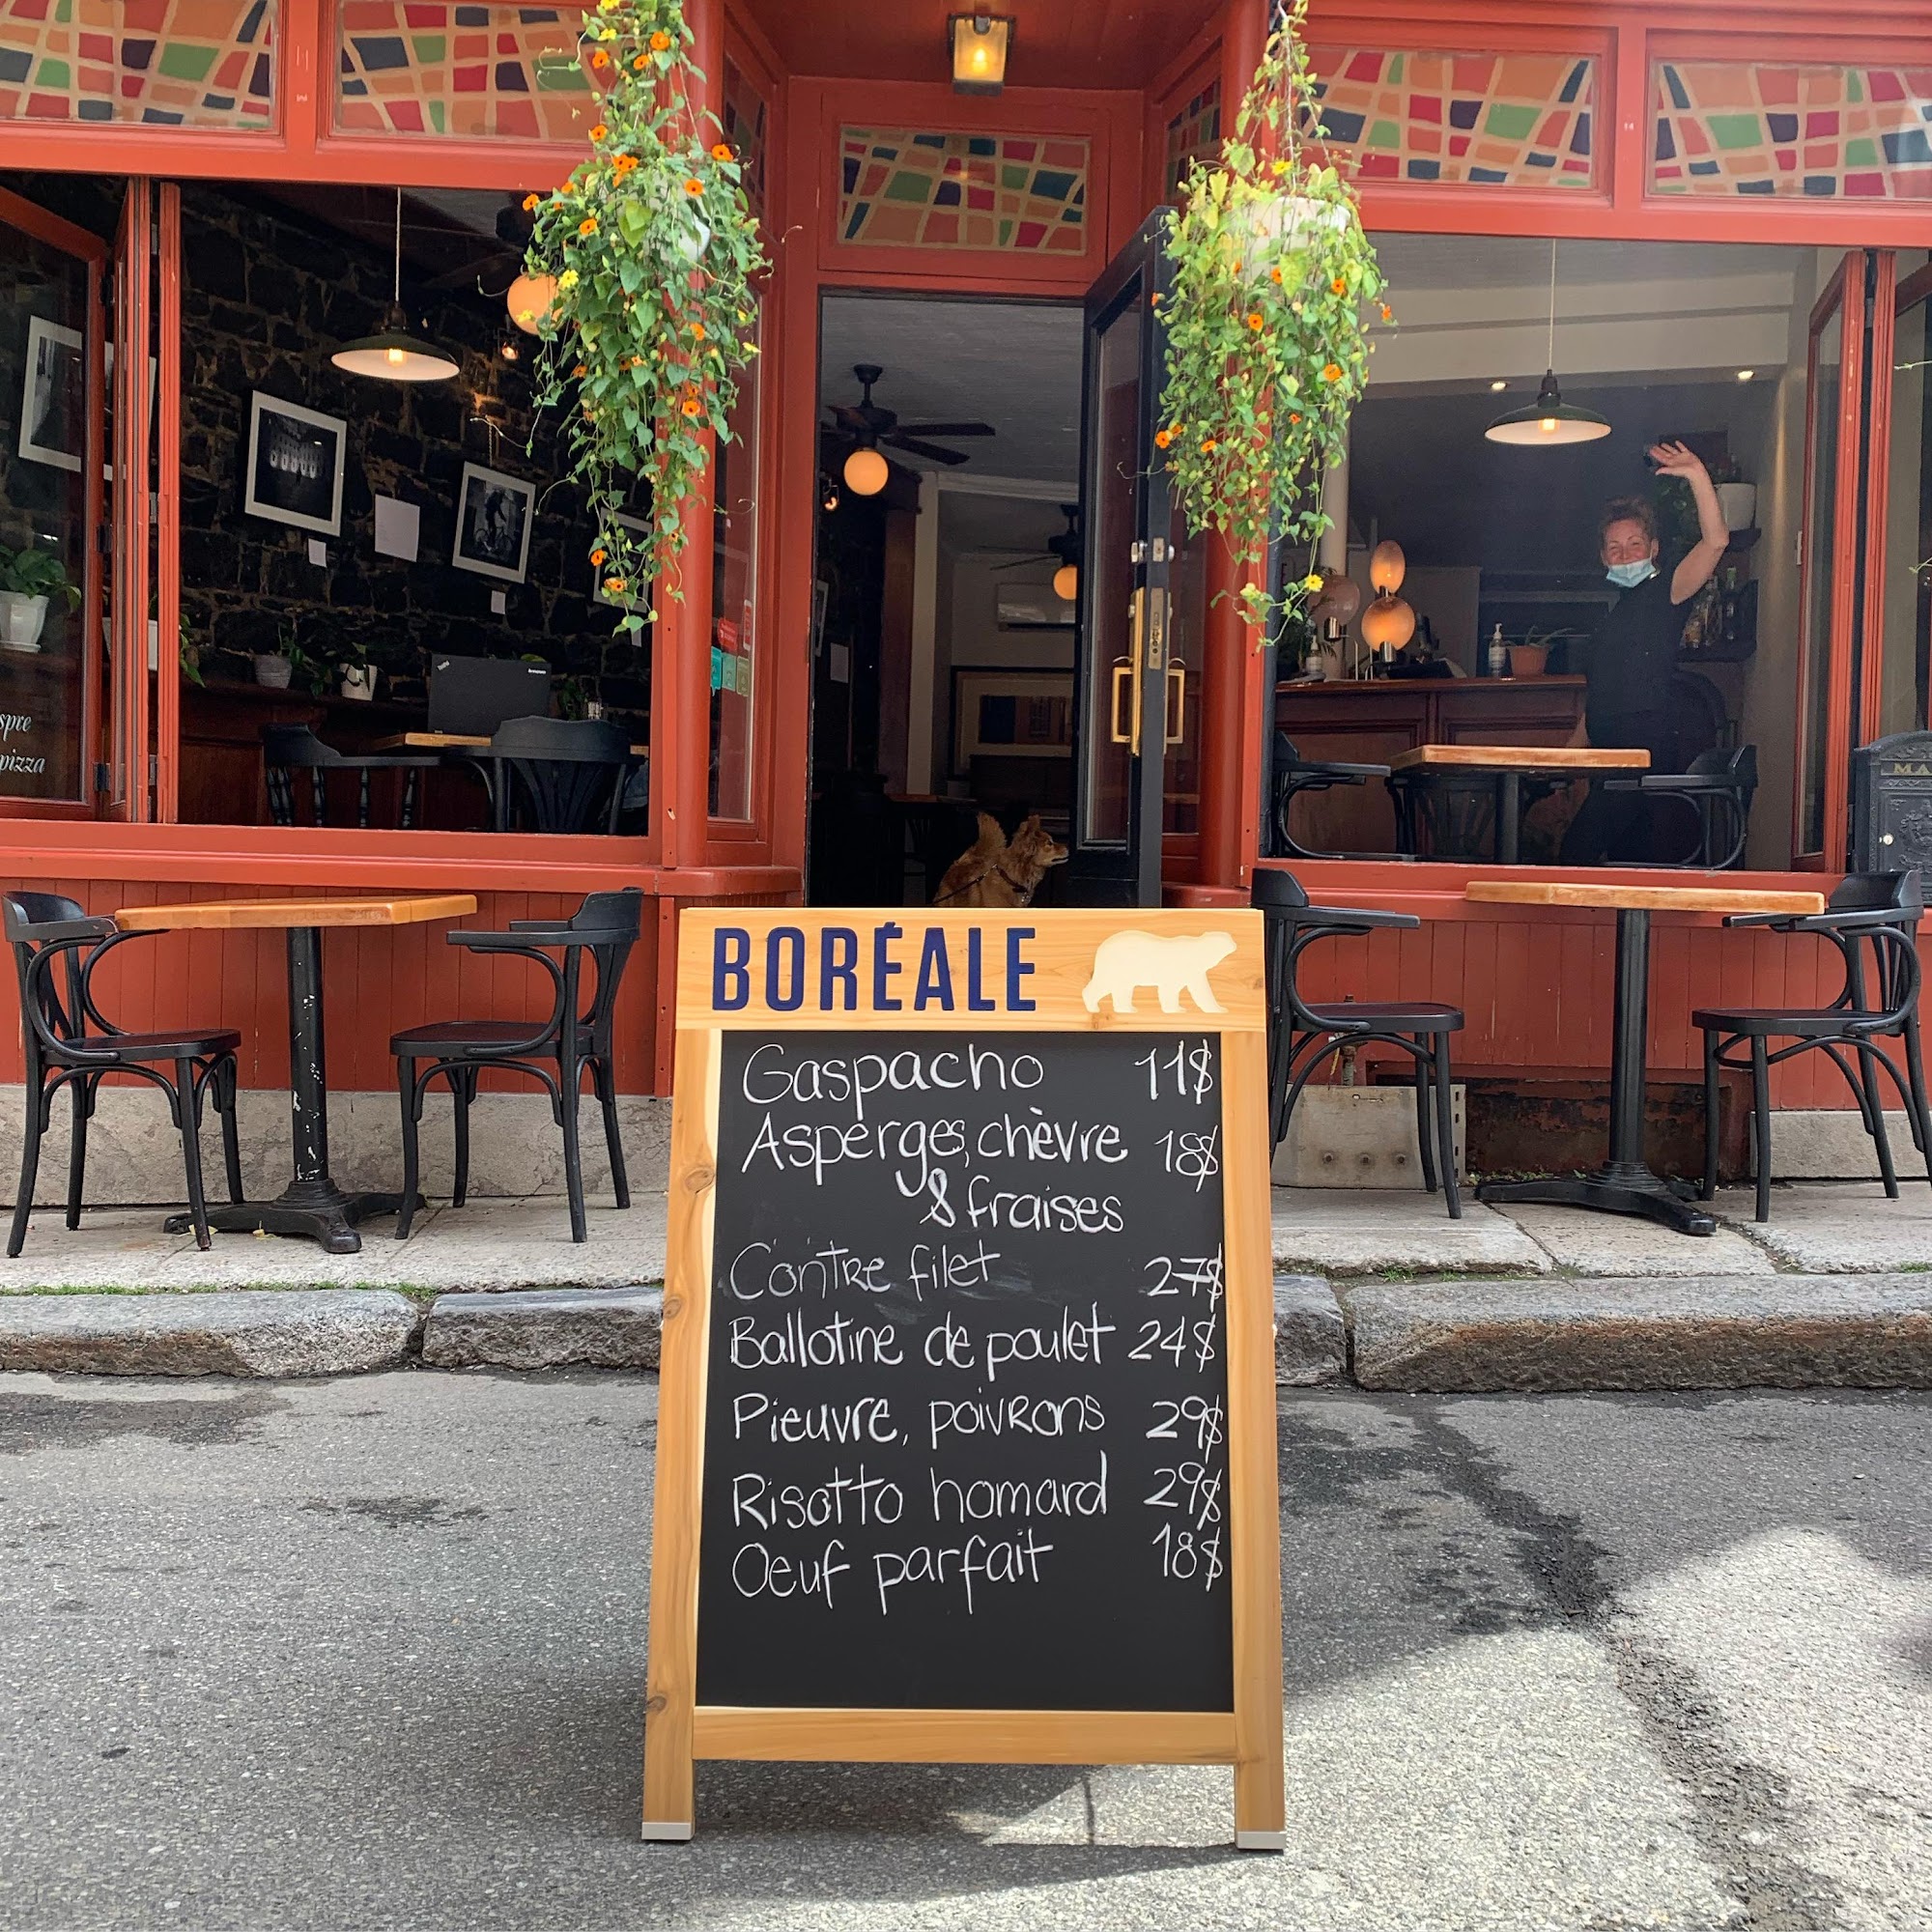 spre
pizza
ThinkPad
lenovo
MA
BORÉALE
Gaspacho 11$
Asperges, chèvre 18$
& fraises
Contre filet 27$
Ballotine de poulet 24$
Pieuvre, poivrons 29$
Risotto homard 29$
Oeuf parfait 18$